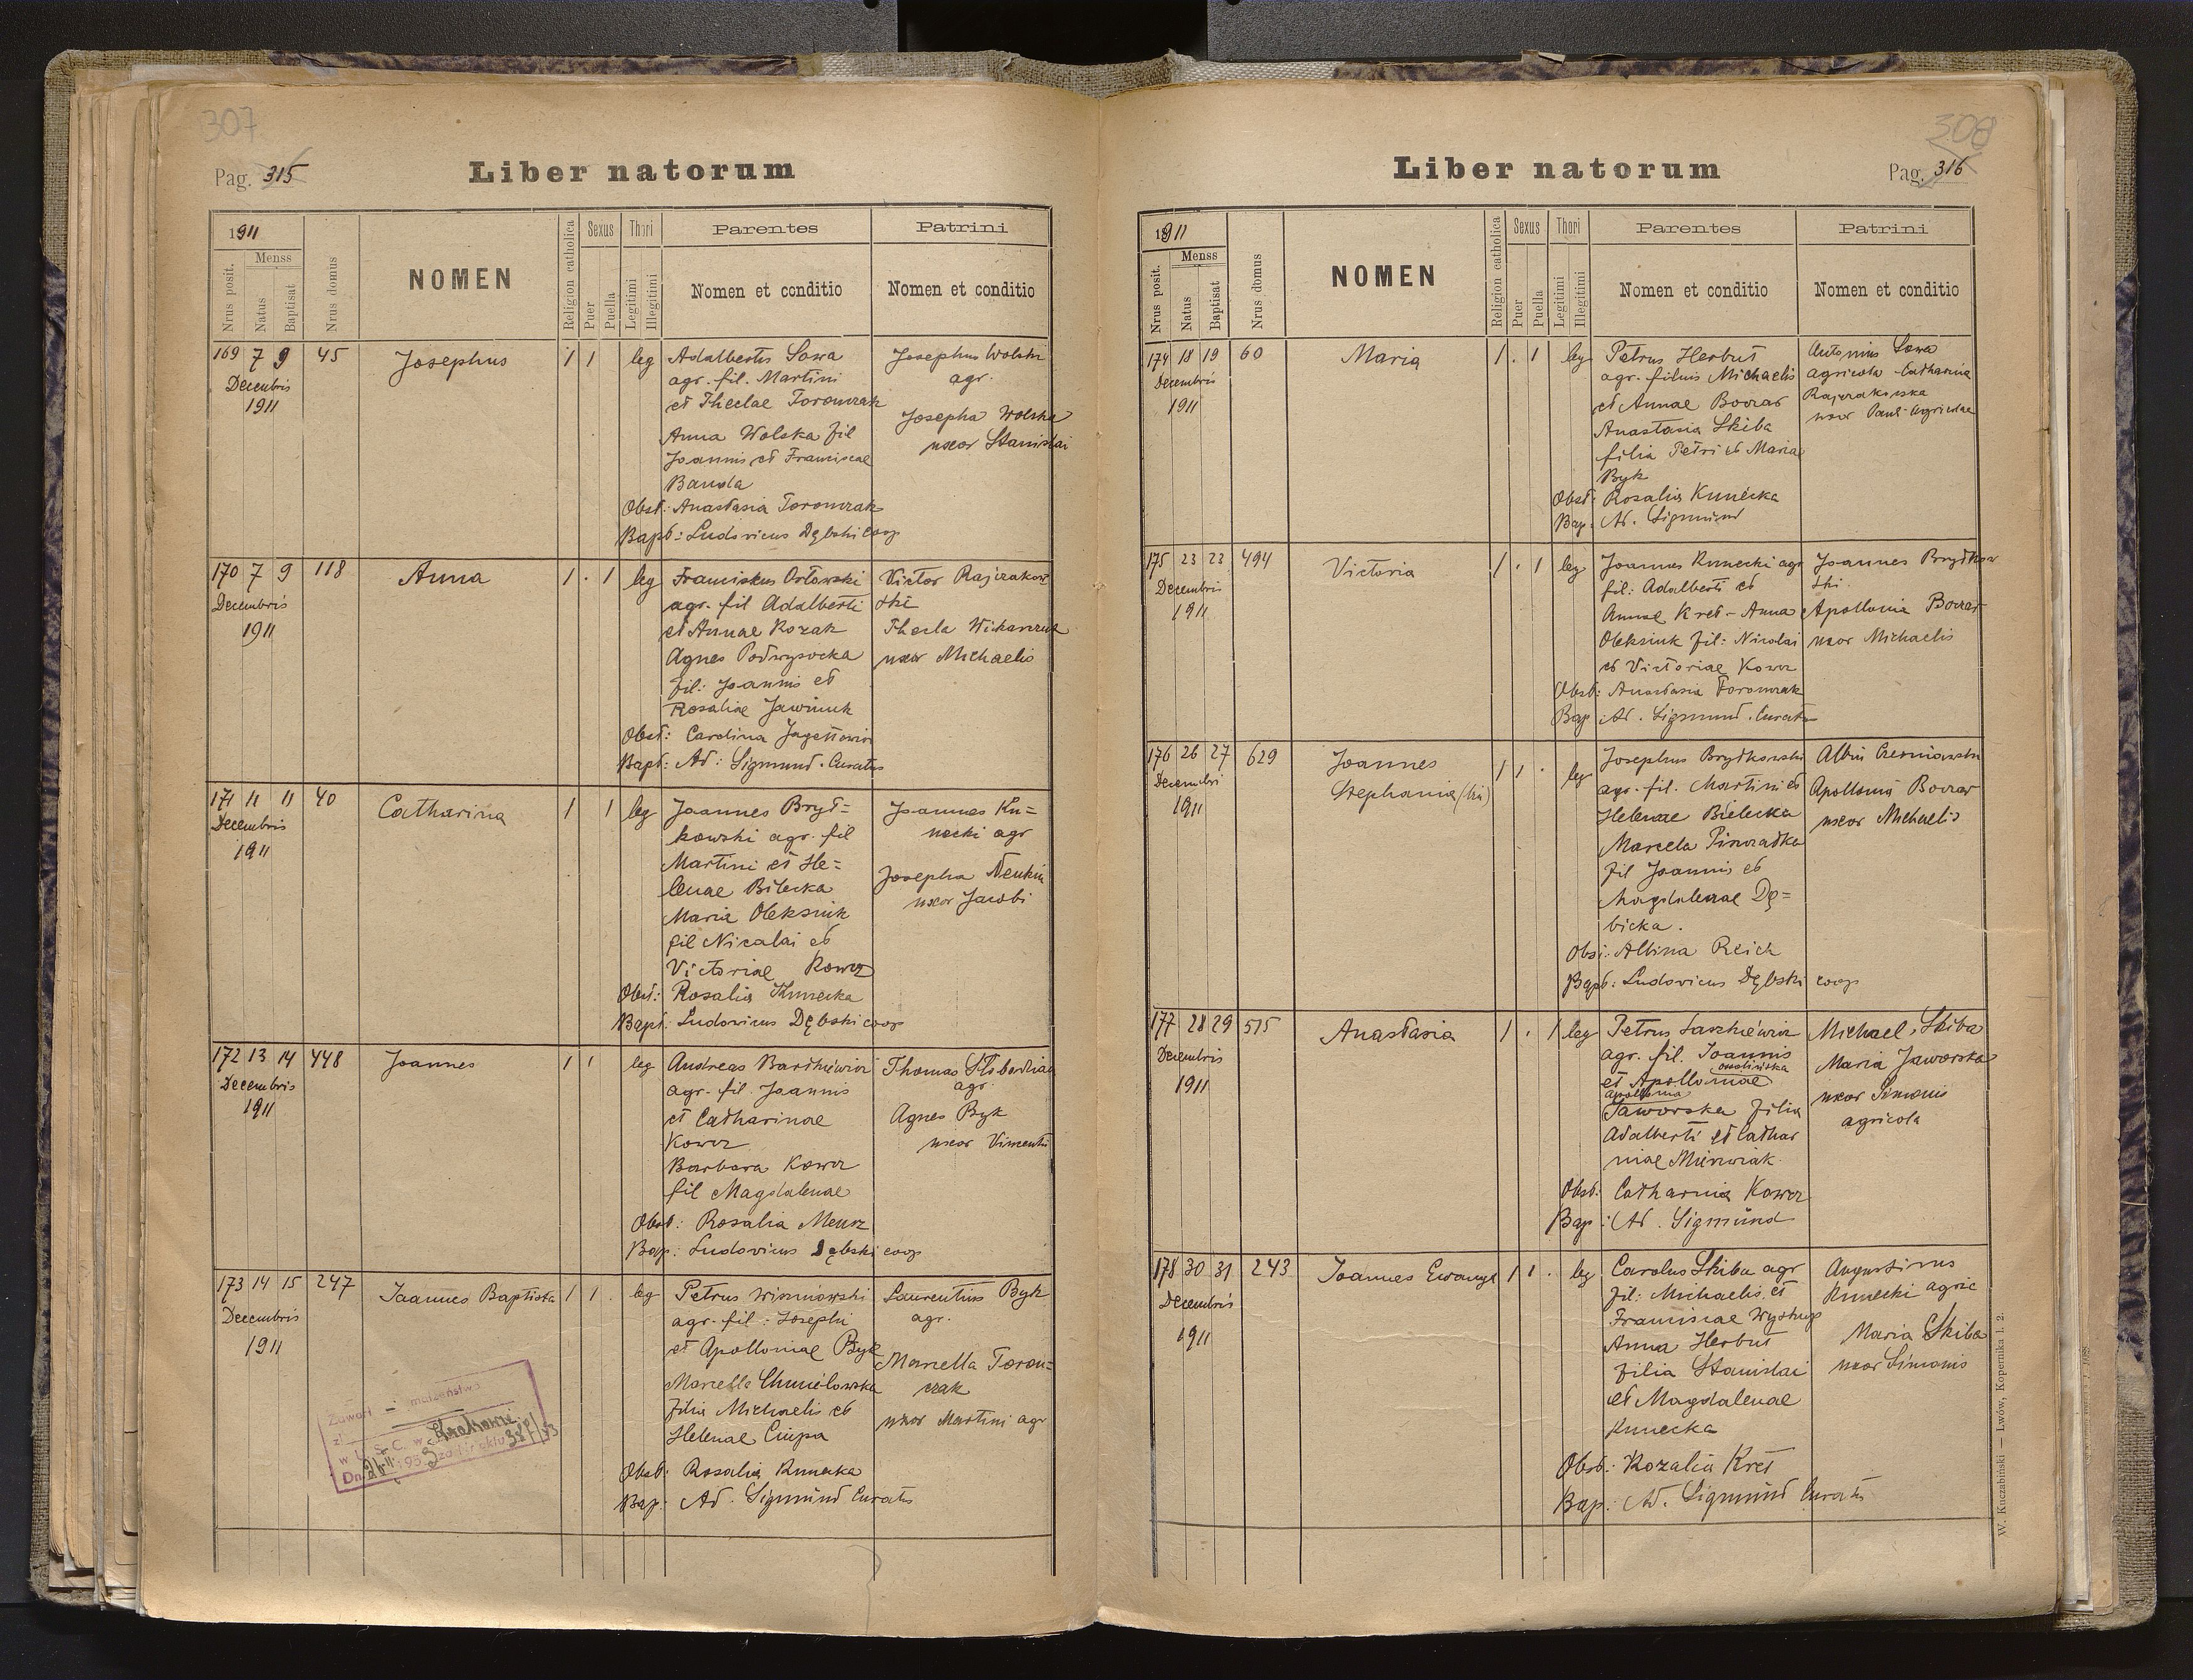 307
Pag. 315
Liber natorum
1911
Nrus posit.
Menss
Natus
Baptisat
Nrus domus
NOMEN
Religion catholica
Sexus
Puer
Puella
Thori
Legitimi
Illegitimi
Parentes
Nomen et conditio
Patrini
Nomen et conditio
169 7 9 45 Josephus 1 1 leg
Decembris
1911
Adalbertus Sowa
agr. fil. Martini
et Theclae Toronczak
Anna Wolska fil
Joannis et Franciscae
Banda
Obst: Anastasia Toronczak
Bapt: Ludovicus Dębski coop
Josephus Wolski
agr.
Josepha Wolska
uxor Stanislai
170 7 9 118 Anna 1 . 1 leg
Decembris
1911
Franciskus Orłowski
agr. fil Adalberti
et Annae Kozak
Agnes Podwysocka
fil: Joannis et
Rosaliae Jawiniuk
Obst: Carolina
Bapt: Ad: Sigmund. Curatus
Victor Rajzakow
ski
Thecla
uxor Michaelis
171 11 11 40 Catharina 1 1 leg
Decembris
1911
Joannes Bryt=
kowski agr. fil
Martini et He=
lenae Bilecka
Maria Oleksiuk
fil Nicolai et
Victoriae Kowcz
Obst: Rosalia Kunecka
Bapt: Ludovicus Dębski coop
Joannes Ku=
necki agr
Josepha
uxor Jacobi
172 13 14 448 Joannes 1 1 leg
Decembris
1911
Andreas
agr. fil. Joannis
et Catharinae
Kowcz
Barbara Kowcz
fil Magdalenae
Obst: Rosalia
Bap: Ludovicus Dębski coop
Thomas
agr.
Agnes Byk
uxor Vincentii
173 14 15 247 Joannes Baptista 1 1 . leg
Decembris
1911
Petrus Wiśniowski
agr. fil: Josephi
et Apolloniae Byk
Marcella Chmielowska
filia Michaelis et
Helenae Ciupa
Obst: Rosalia Kunecka
Bap: Ad. Sigmund Curatus
Laurentius Byk
agr.
Marcella Toron=
czak
uxor Martini agr
Zawarł małżeństwo
w U.S.C. w Krakowie
308
Pag. 316
Liber natorum
1911
Nrus posit.
Menss
Natus
Baptisat
Nrus domus
NOMEN
Religion catholica
Sexus
Puer
Puella
Thori
Legitimi
Illegitimi
Parentes
Nomen et conditio
Patrini
Nomen et conditio
174 18 19 60 Maria 1 . 1 leg
Decembris
1911
Petrus Herbut
agr. filius Michaelis
et Annae Boczar
Anastasia Skiba
filia Petri et Maria
Byk
Obst: Rosalia Kunecka
Bap: Ad. Sigmund
Antonius Sowa
agricola Catharina
Rajzakowska
uxor Pauli agricolae
175 23 23 494 Victoria 1 . 1 leg
Decembris
1911
Joannes Kunecki agr
fil: Adalberti et
Annae Kret - Anna
Oleksiuk fil: Nicolai
et Victoriae Kowcz
Obst: Anastasia Toronczak
Bap: Ad. Sigmund. Curatus
Joannes Brytkow
ski
Apollonia Boczar
uxor Michaelis
176 26 27 629 Joannes 1 1 . leg
Decembri
1911
Stephania
Josephus Brytkowski
agr. fil. Martini et
Helenae Bielecka
Marcela
fil Joannis et
Magdalenae Dę=
bicka.
Obst: Albina Reich
Bapt: Ludovicus Dębski coop
Albin
Apollonia Boczar
uxor Michaelis
177 28 29 515 Anastasia 1 . 1 leg
Decembris
1911
Petrus
agr. fil. Joannis
et Apolloniae
apollonia
Jaworska filia
Adalberti et Cathar
inae
Obst: Catharina Kowcz
Bap: Ad. Sigmund
Michael Skiba
Maria Jaworska
uxor Simonis
agricola
178 30 31 243 Joannes Ewangel 1 1 . leg
Decembris
1911
Carolus Skiba agr
fil: Michaelis et
Franciscae Wystup
Anna Herbut
filia Stanislai
et Magdalenae
Kunecka
Obst: Rozalia Kret
Bap: Ad. Sigmund Curatus
Augustinus
Kunecki agric
Maria Skiba
uxor Simonis
W. Kuczabiński — Lwów, Kopernika l. 2.